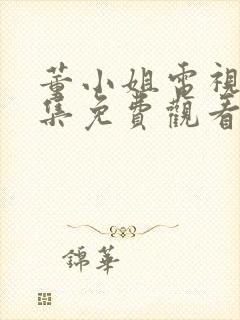 董小姐電視
集免費觀看
錦華